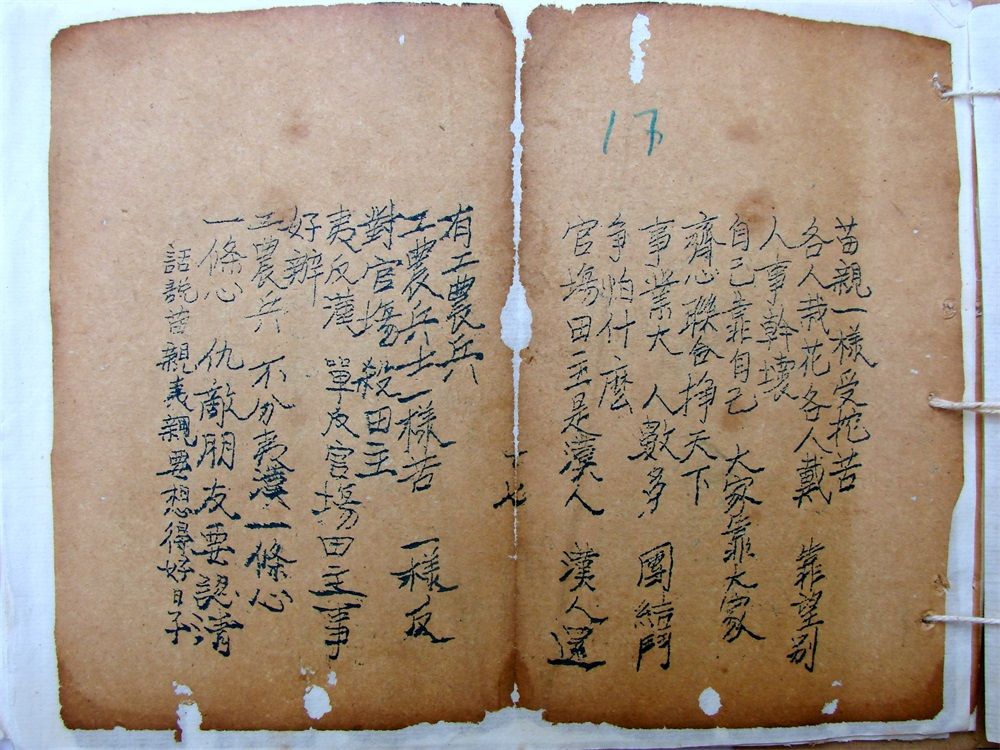 17
苗親一樣受挖苦
各人栽花各人戴　靠望別
人事幹壞
自己靠自己　大家靠大家
齊心聯合掙天下
事業大　人數多　團結鬥
争怕什麽
官塲田主是漢人　漢人還
一七
有工農兵
工農兵士一樣苦　一樣反
對官塲　殺田主
夷反漢　單反官塲田主事
好辦
工農兵　不分夷漢一條心
一條心　仇敵朋友要認清
話説苗親夷親要想得好日子